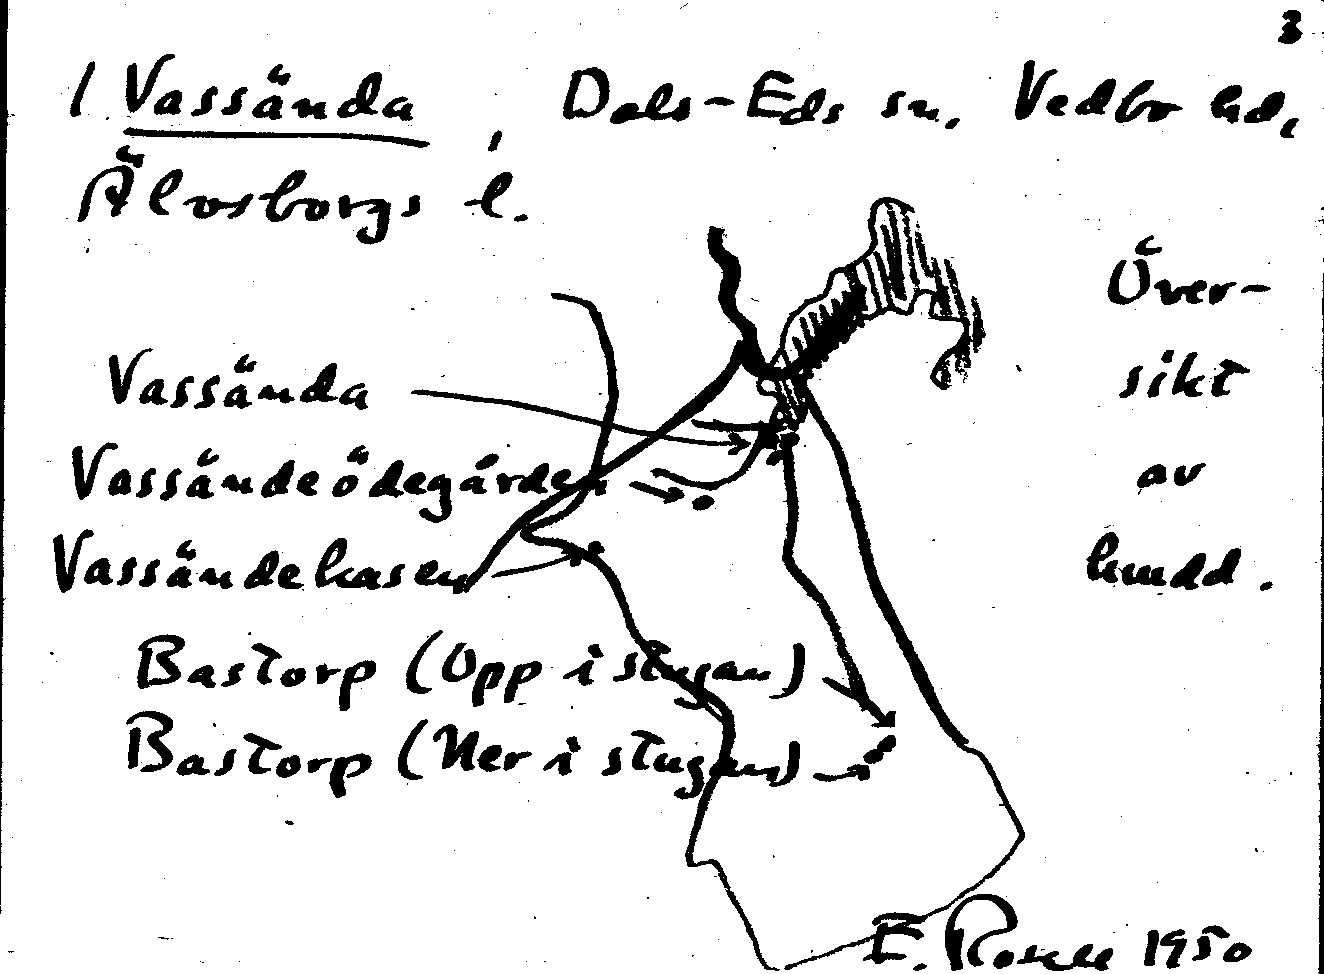 3
1 Vassända, Dals-Eds sn. Vedbo hd,
Älvsborgs l.
Över-
sikt
av
hmdd.
Vassända
Vassändeödegården
Vassändekasen
Bastorp (Opp i stugan)
Bastorp (Ner i stugan)
E. 1950